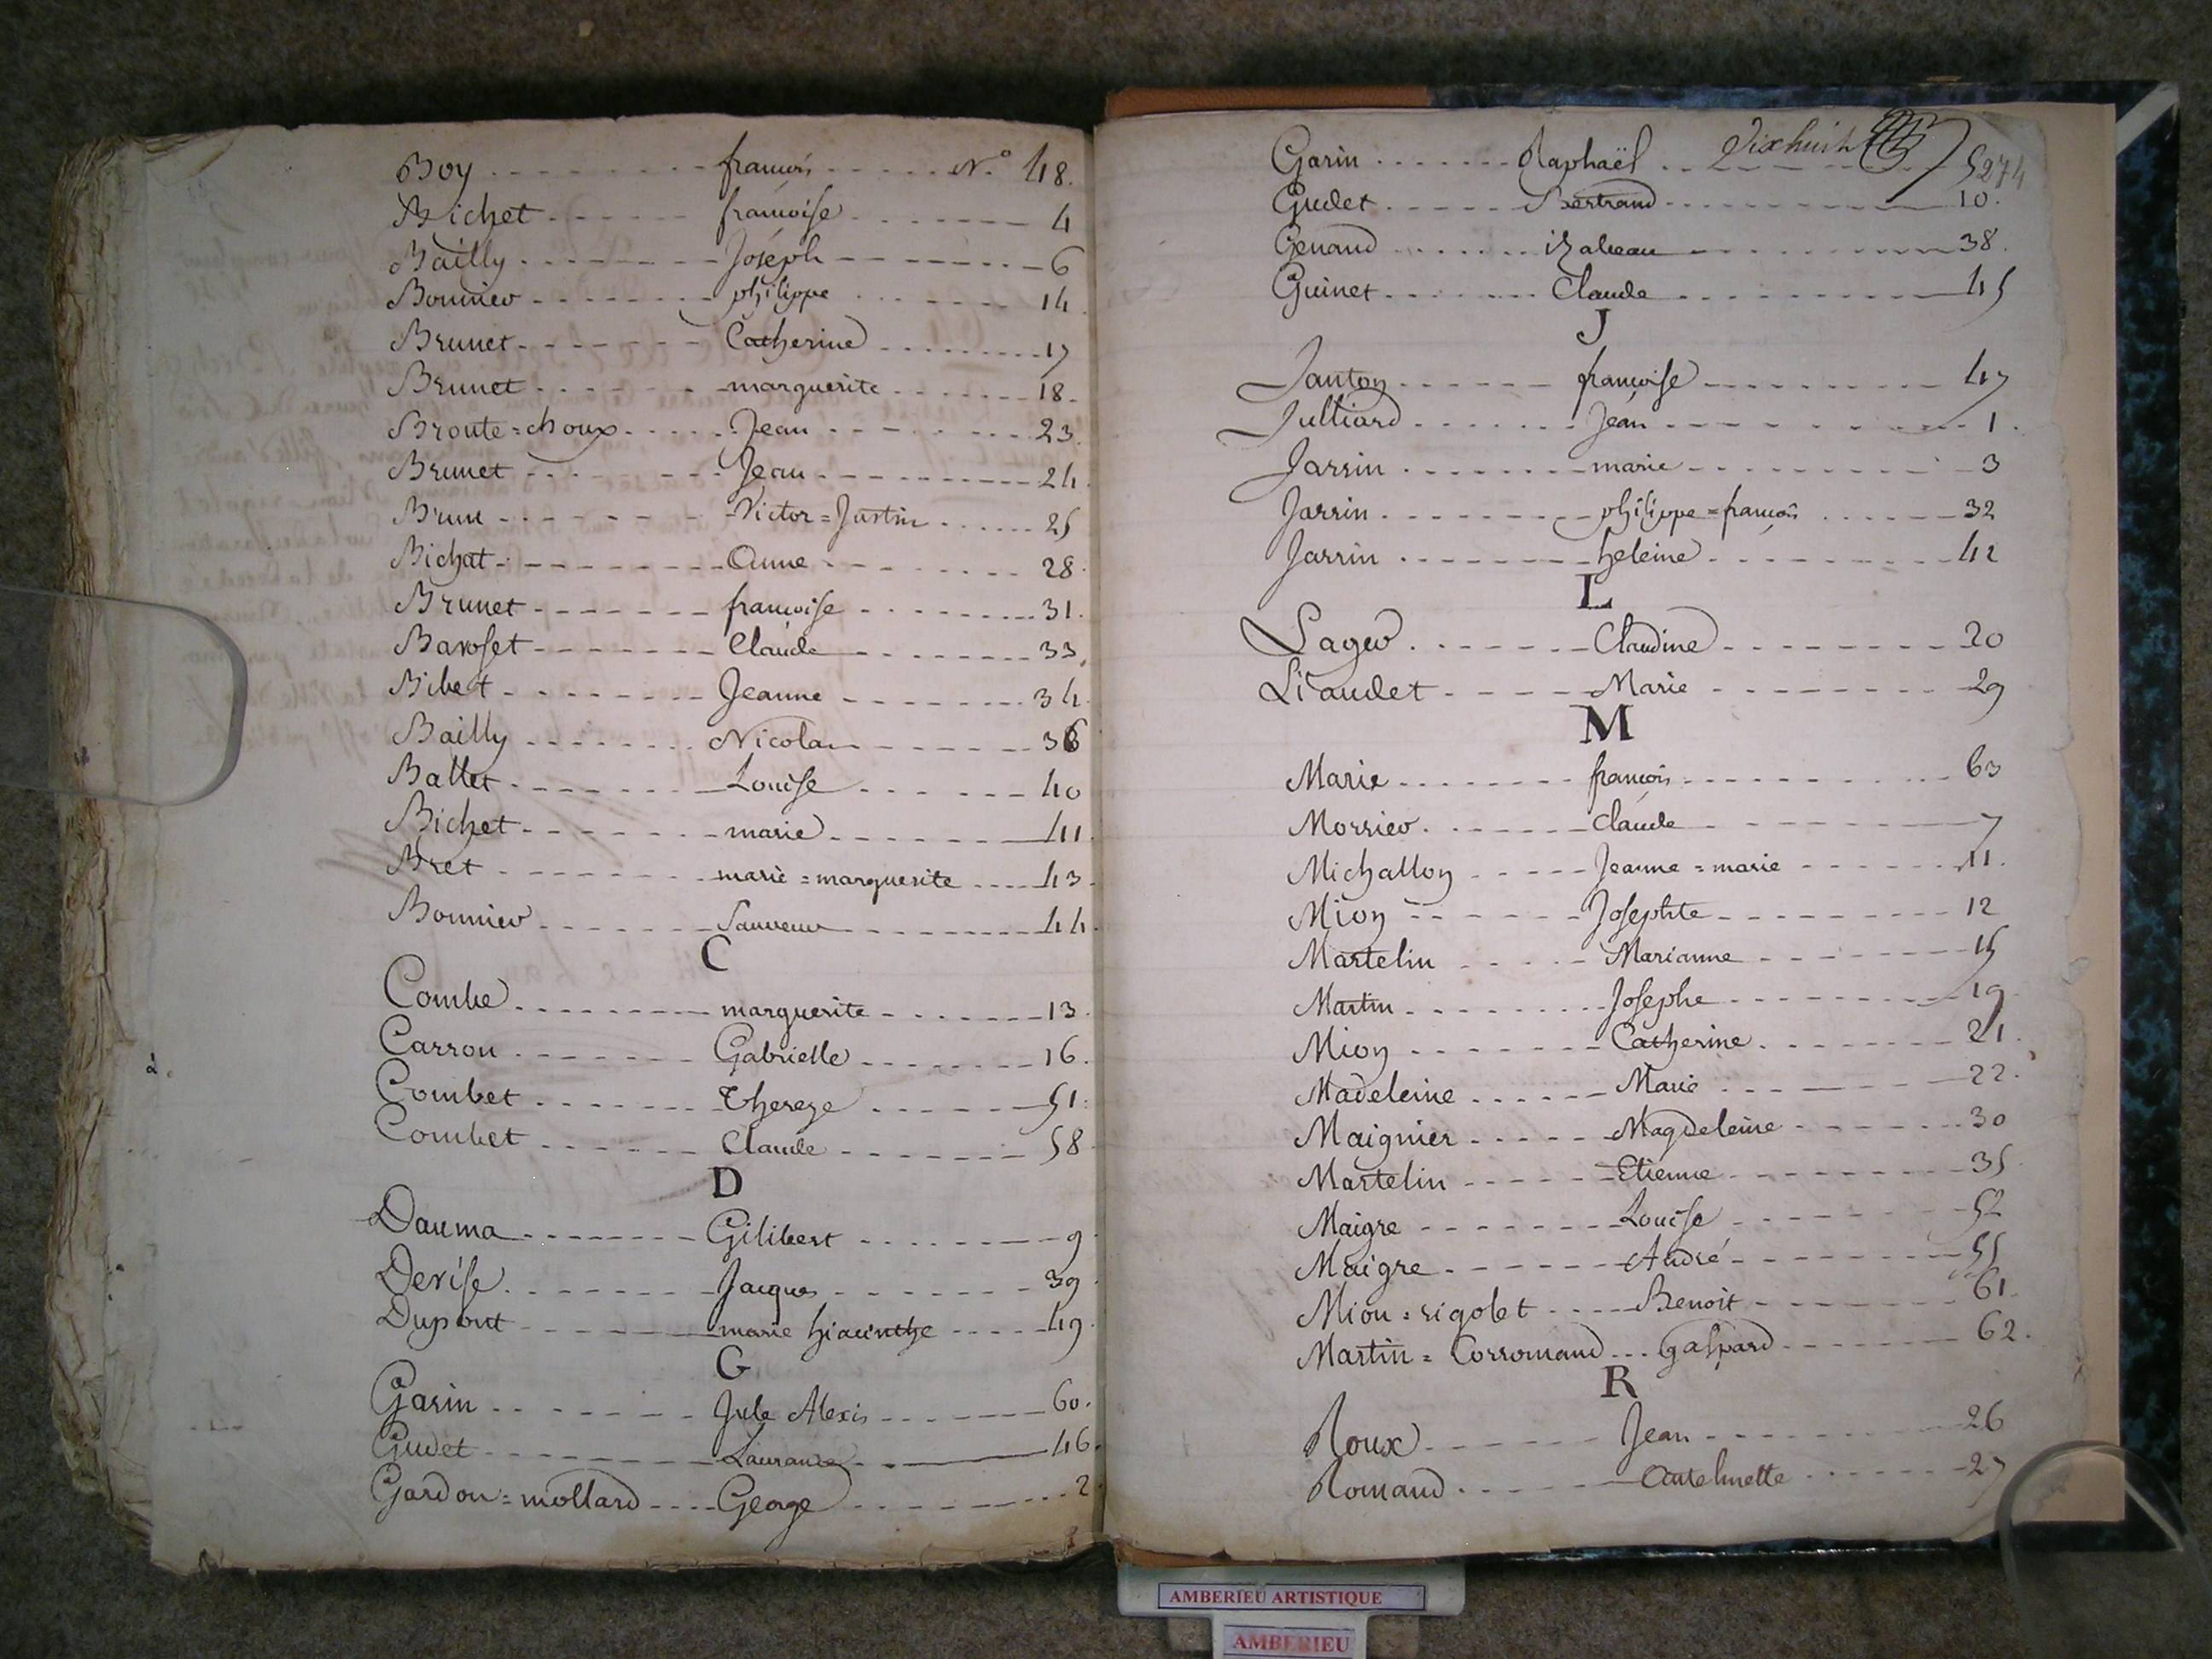 Boy françois N.° 48.
Bichet françoise 4
Bailly Joseph 6
Bonnier philippe 14
Brunet Catherine 17
Brunet marguerite 18.
Broute=choux Jean 23.
Brunet Jean 24
Brun Victor=Justin 25
Bichat Anne 28
Brunet françoise 31.
Baroset Claude 33
Bibet Jeanne 34
Bailly Nicolas 36
Ballet Louise 40
Bichet marie 41
Bret marie=marguerite 43
Bonnier Sauveur 44
C
Combe marguerite 13
Carron Gabrielle 16.
Combet Thereze 51
Combet Claude 58
D
Dauma Gilibert 9
Devise Jacques 39
Dupont marie hiacinthe 49
G
Garin Jule Alexis 60.
Gudet Laurance 46
Gardon=mollard George 2
dixhuit
Garin Raphaël 5 274
Gudet Bertrand 10.
Genaud izabeau 38.
Guinet Claude 45
J
Janton françoise 47
Julliard Jean 1.
Jarrin marie 3
Jarrin philippe=françois 32
Jarrin heleine 42
L
Lager Claudine 20
Liaudet Marie 29
M
Marie françois 63
Morrier Claude 7
Michallon Jeanne=marie 11.
Mion Josephte 12
Martelin Marianne 15
Martin Josephe 19
Mion Catherine 21.
Madeleine Marie 22.
Maignier Magdeleine 30
Martelin Etienne 35
Maigre Louise 52
Maigre André 55
Mion=rigolet Benoit 61.
Martin=Corromand gaspard 62.
R
Roux Jean 26
Romand Antelmette 27
AMBERIEU ARTISTIQUE
AMBERIEU